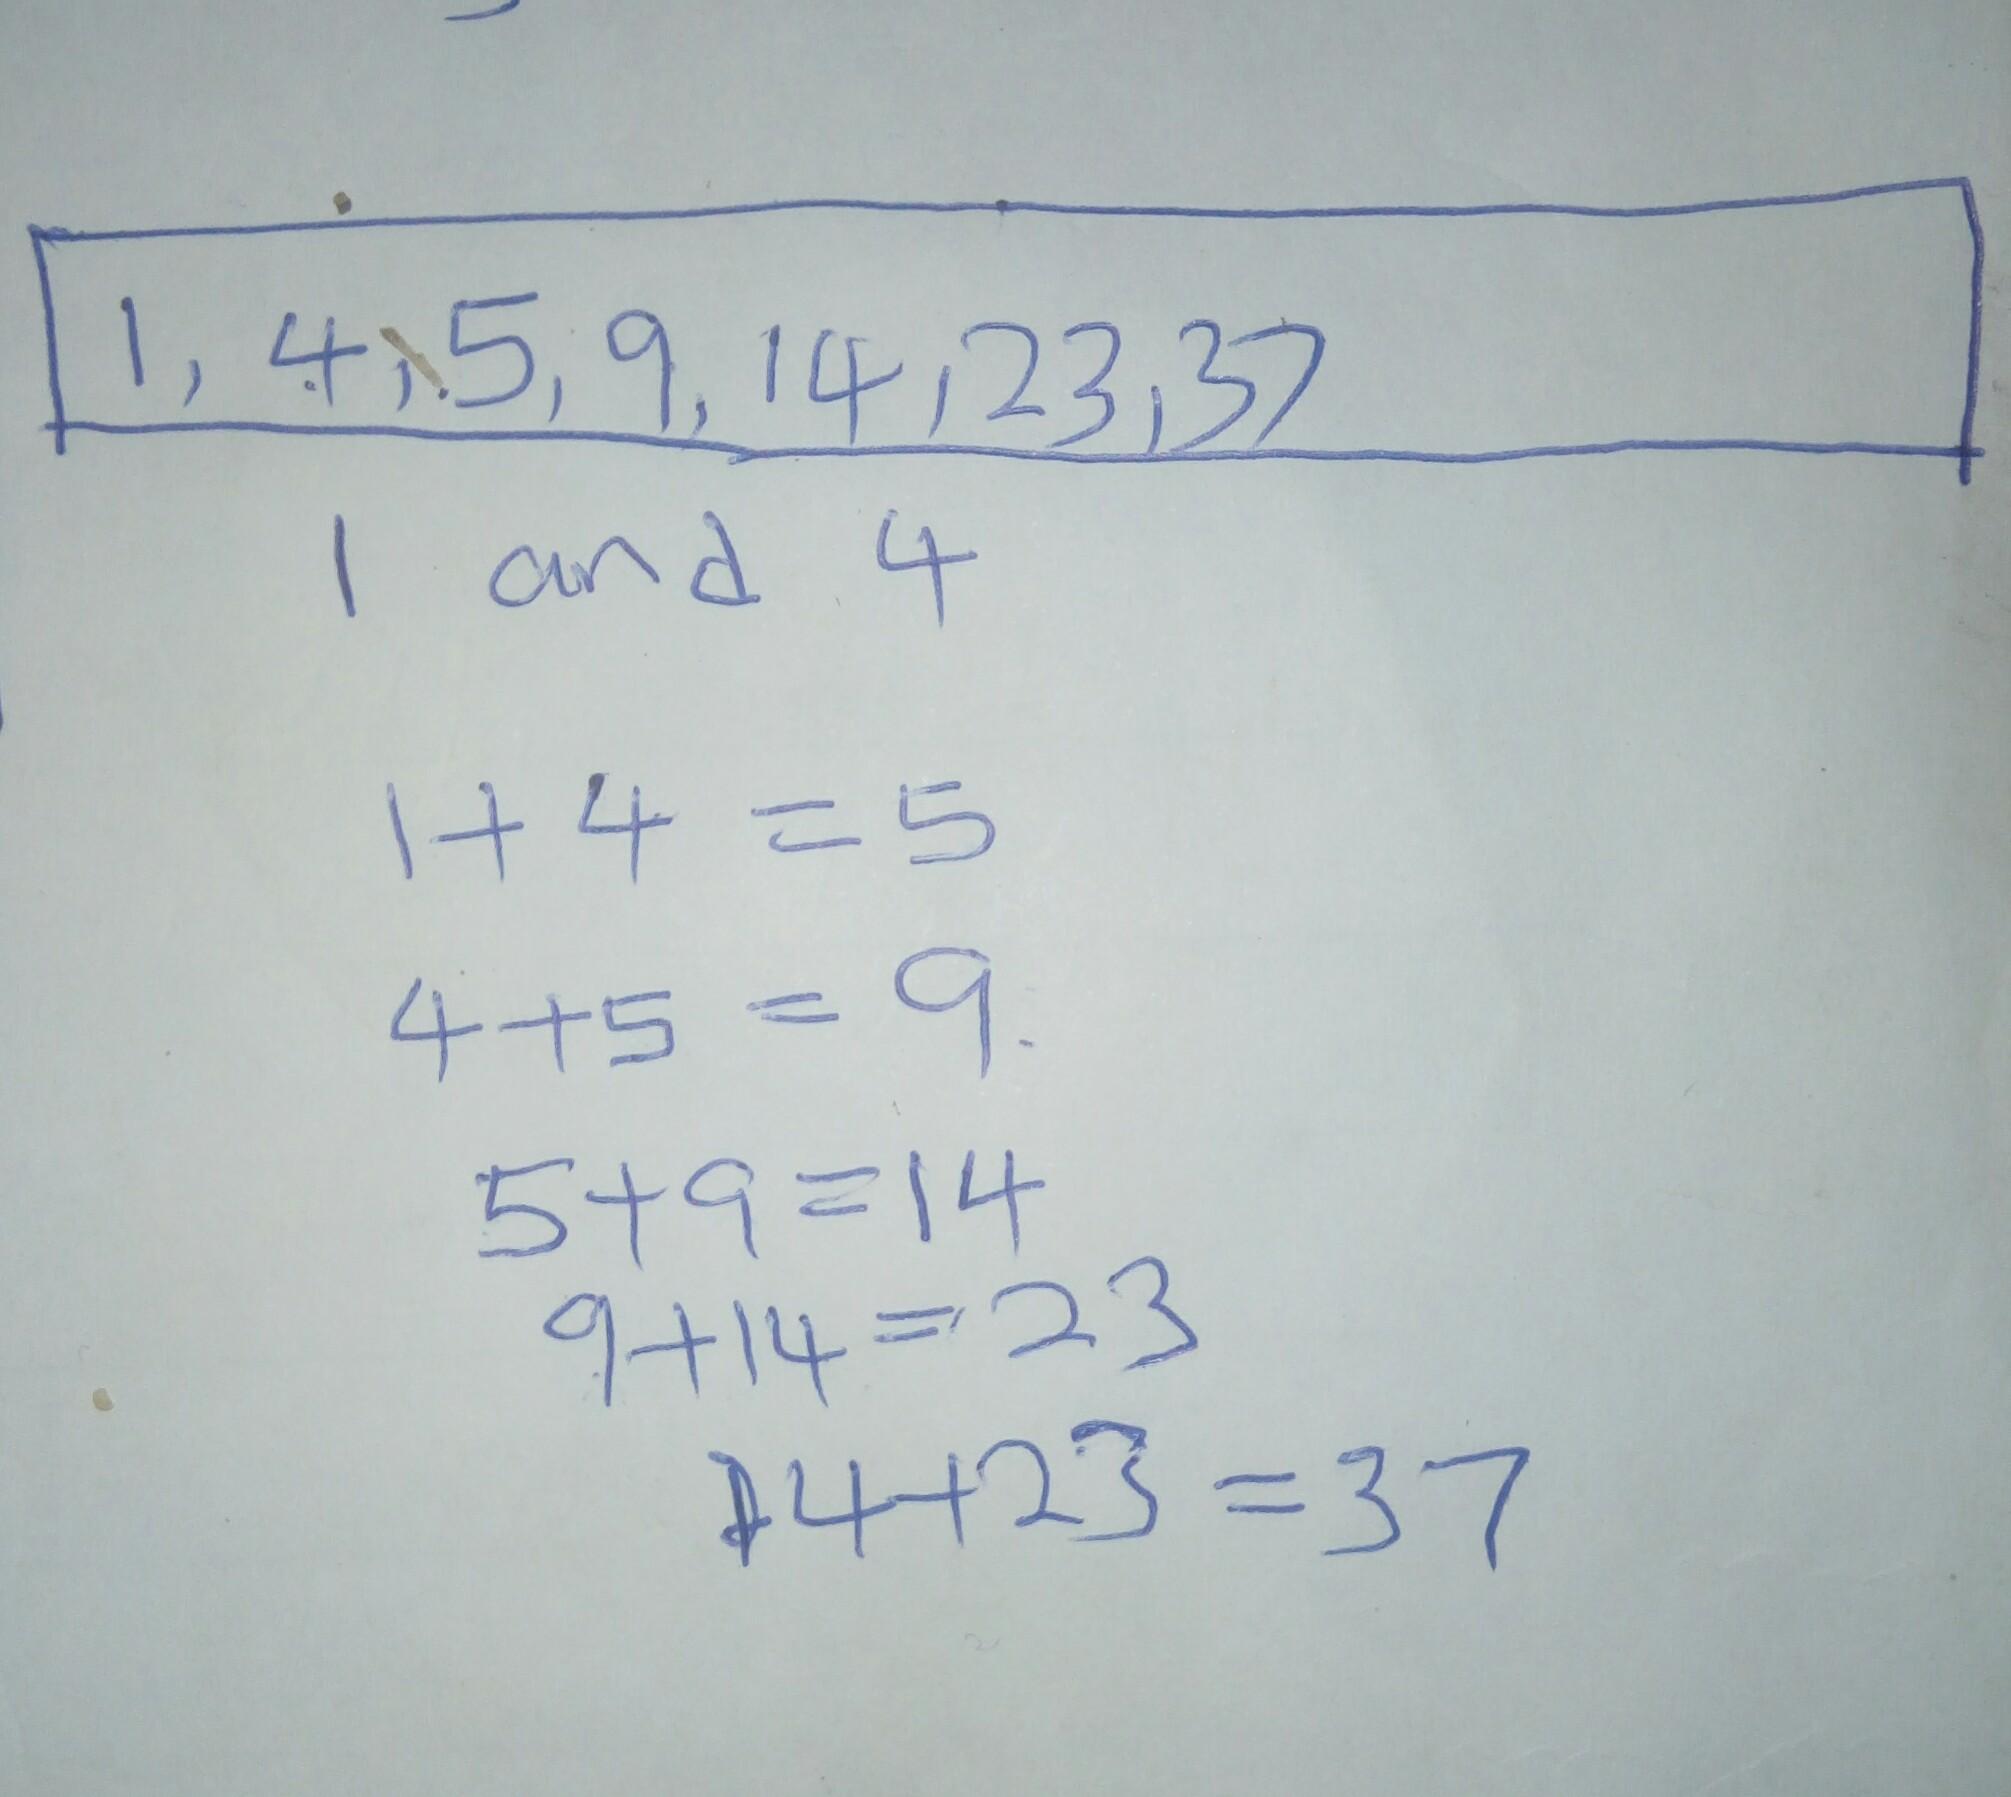 1, 4, 5, 9, 14, 23, 37
1 and 4
1+4 = 5
4+5 = 9.
5+9=14
9+14=23
14+23=37